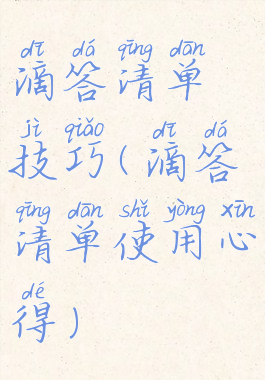 dī dá qīng dān
滴答清单
jì qiǎo dī dá
技巧(滴答
qīng dān shǐ yòng xīn
清单使用心
dé
得)